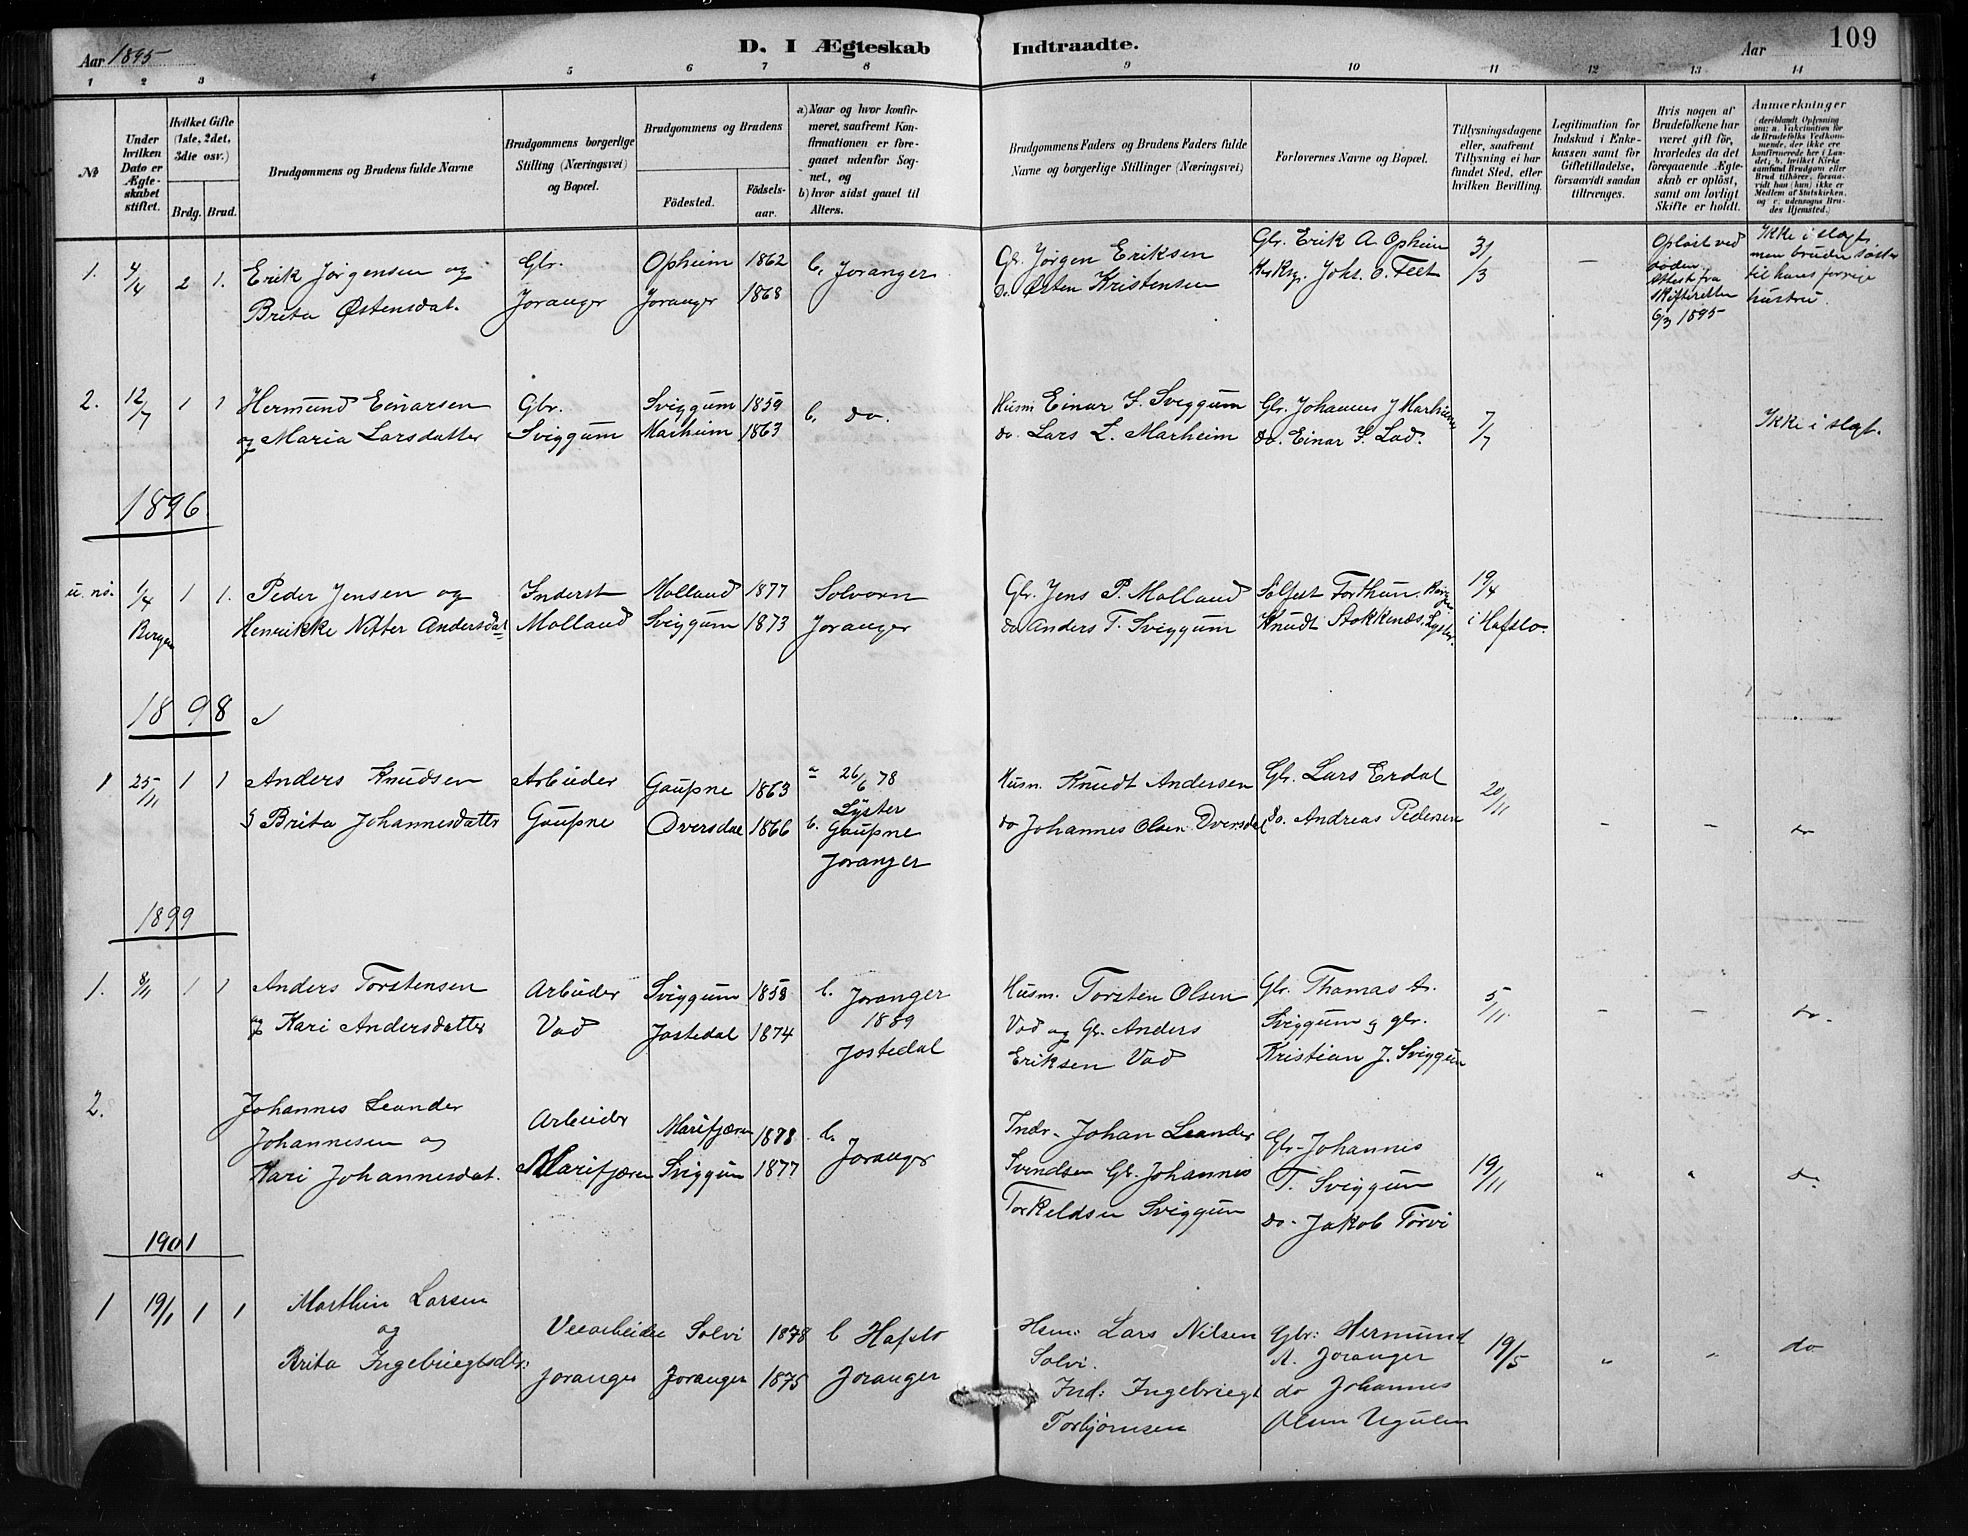 Aar 1895 D. I Ægteskab Indtraadte. Aar 109
1 2 3 4 5 6 7 8 9 10 11 12 13 14
№
Under hvilken Dato er Ægteskabet stiftet.
Hvilket Gifte (1ste, 2det, 3die osv.)
Brdg. Brud.
Brudgommens og Brudens fulde Navne
Brudgommens borgerlige Stilling (Næringsvei) og Bopæl.
Brudgommens og Brudens
Födested. Födsels-aar.
a) Naar og hvor konfirmeret, saafremt Konfirmationen er foregaaet udenfor Sognet, og
b) hvor sidst gaaet til Alters.
Brudgommens Faders og Brudens Faders fulde Navne og borgerlige Stillinger (Næringsvei)
Forlovernes Navne og Bopæl.
Tillysningsdagene eller, saafremt Tillysning ei har fundet Sted, efter hvilken Bevilling.
Legitimation for Indskud i Enkekassen samt for Giftetilladelse, forsaavidt saadan tiltrænges.
Hvis nogen af Brudefolkene har været gift för, hvorledes da det foregaaende Ægteskab er oplöst, samt om lovligt Skifte er holdt.
Anmærkninger (deriblandt Oplysning om: a. Vakcination for de Brudefolks Vedkommende, der ikke ere konfirmerede her i Landet, b. hvilket Kirkesamfund Brudgom eller Brud tilhörer, forsaavidt han (hun) ikke er Medlem af Statskirken, og c. udensogns Brudes Hjemsted.)
1. 4/4 2 1. Erik Jørgensen og Gbr. Opheim 1862 b. Joranger Gb. Jørgen Eriksen Gbr. Erik A Opheim 31/3 – Opløst ved døden Attest fra Skifteretten 6/3 1895 Ikke i slegt men brudens søster til hans forrige hustru.
Brita Østensdat. Joranger Joranger 1868 Do. Østen Kristensen Johs. O. Feet
2. 12/7 1 1 Hermund Einarsen Gbr. Sviggum 1859 b. do. Husm Einar S. Sviggum Gbr. Johannes J Marheim 7/7 Ikke i slegt.
og Maria Larsdatter Sviggum Marheim 1863 do. Lars L. Marheim do. Einar S. Lad.
1896
u. no. 1/4 1 1. Peder Jensen og Inderst Molland 1877 Solvorn Gbr. Jens P. Molland Solfest Forthun, 19/4
Bergen Henrikke Nitter Andersdat Molland Sviggum 1873 Joranger do Anders T. Sviggum Knudt Stokkenæs, Lyster. i Hafslo.
1898
1 25/11 1 1 Anders Knudsen Arbeider Gaupne 1863 a 26/6 78 Husm. Knudt Andersen Gbr. Lars Erdal 20/11
Lyster
& Brita Johannesdatter Gaupne Dversdal 1866 b. Gaupne do Johannes Olsen Dversdal Do. Andreas Pedersen – – do
Joranger
1899
1. 8/11 1 1 Anders Torstensen Arbeider Sviggum 1858 b. Joranger Husm. Torsten Olsen Gbr. Thomas A. 5/11 – – do.
og Kari Andersdatter Vad Jostedal 1874 1889 Vad og Gb. Anders Sviggum og gbr.
Jostedal Eriksen Vad Kristian J. Sviggum
2. Johannes Leander Arbeider Marifjæren 1878 b. Indr. Johan Leander Gbr. Johannes
Johannesen og Joranger Svendsen Gb. Johannes T. Sviggum 19/11 " " do
Kari Johannesdat. Marifjæren Sviggum 1877 Torkeldsen Sviggum do. Jakob Tørvi
1901
1 19/1 1 1 Marthin Larsen Veiarbeider Solvi 1878 b Hafslo Hsm: Lars Nilsen Gbr: Hermund 19/5 " " do
og Solvi. A. Joranger
Brita Ingebriegtsdtr: Joranger Joranger 1875 Joranger Ind: Ingebriegt do Johannes
Torbjørnsen Olsen Ugulen